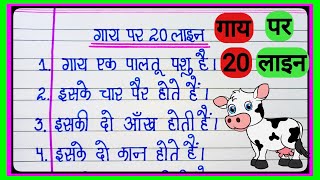 गाय पर 20 लाइन
1. गाय एक पालतू पशु है।
2. इसके चार पैर होते हैं।
3. इसकी दो आँख होती हैं।
4. इसके दो कान होते हैं।
गाय पर
20 लाइन